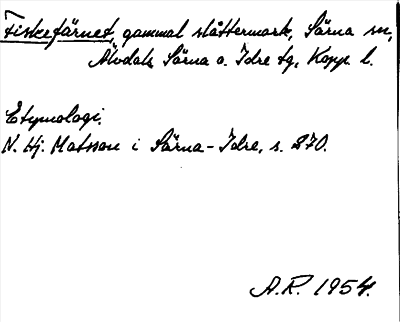 Fiskefärnet, gammal slåttermark, Särna sn,
Älvdals, Särna o. Idre tg, Kopp. l.
Etymologi.
N. Hj. Matsson i Särna-Idre, s. 270.
A.R. 1954.